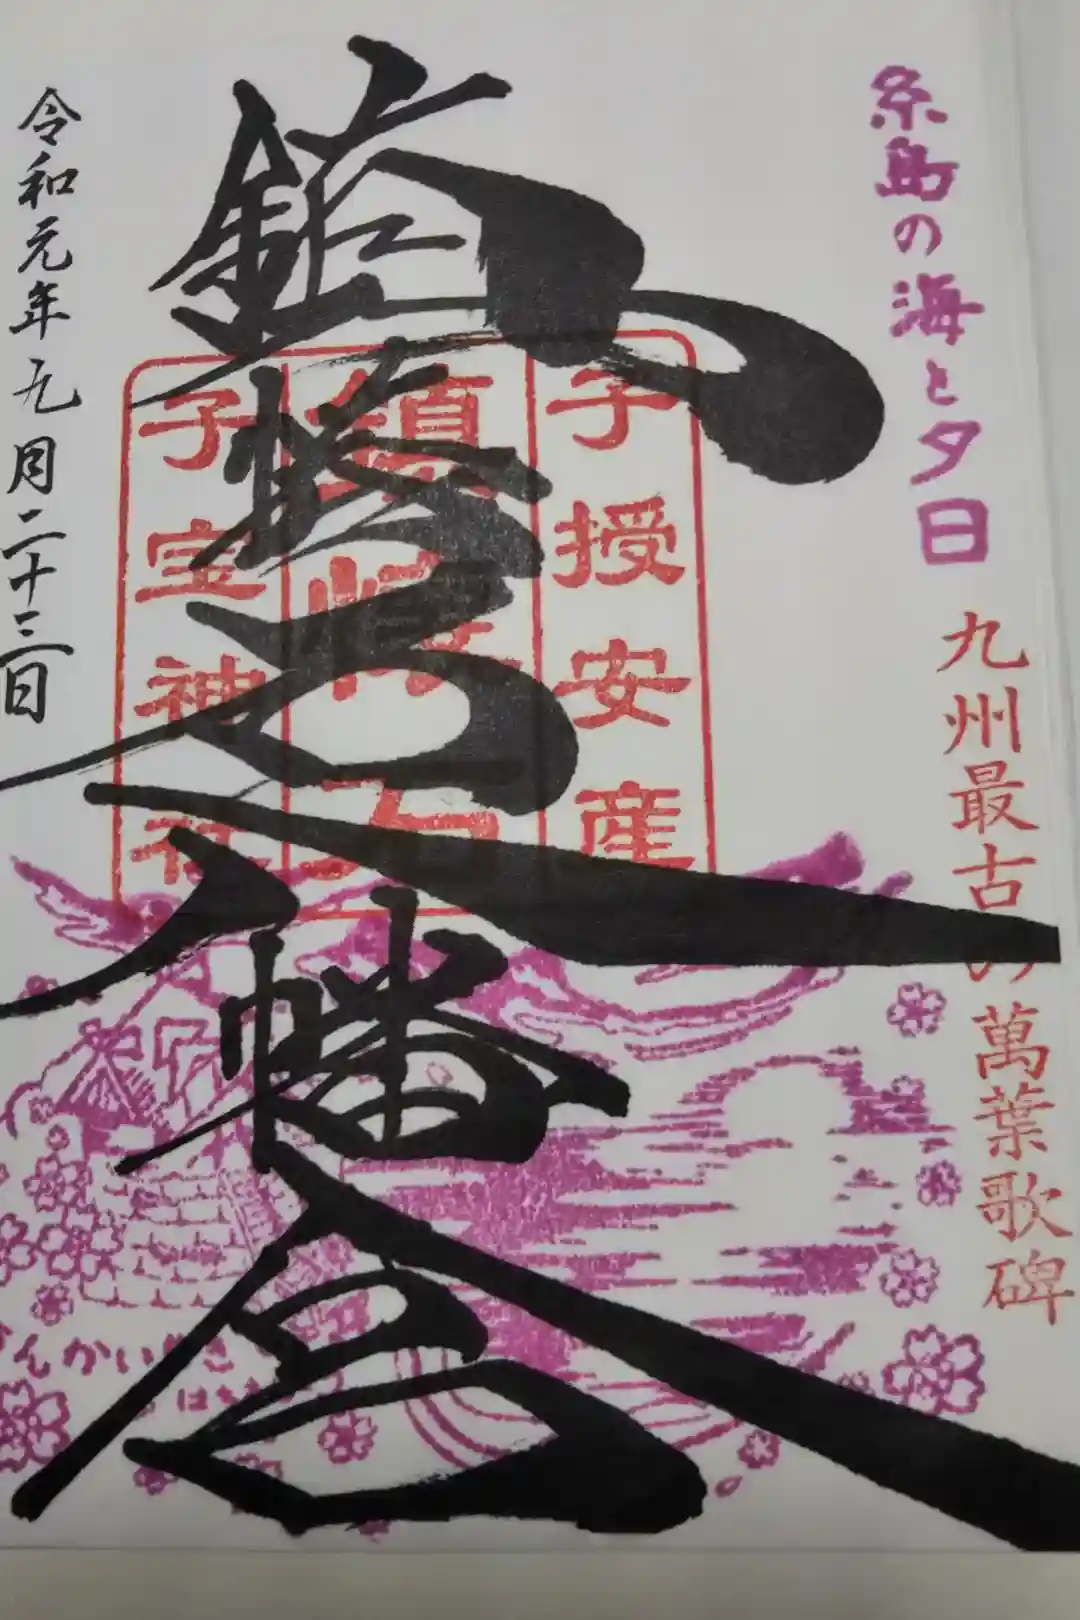 糸島の海と夕日
九州最古の萬葉歌碑
子授安産
鎮懐石
子宝神社
鎮懐石八幡宮
令和元年九月二十三日